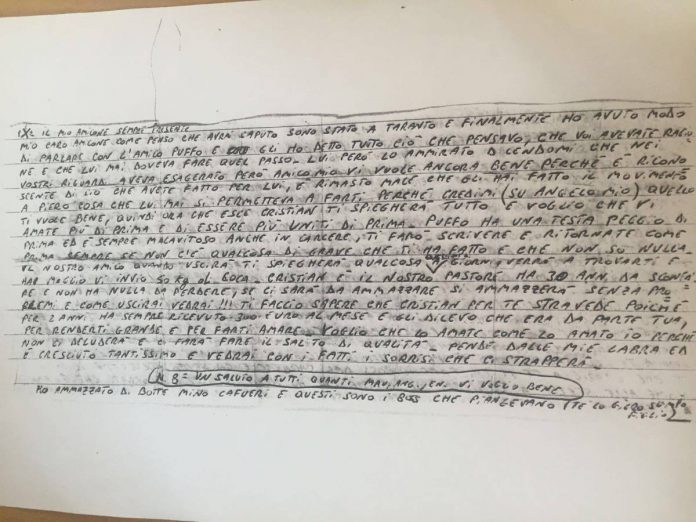 IL MIO AMICONE SEMPRE PRESENTE
MIO CARO AMICONE COME PENSO CHE AVRAI SAPUTO SONO STATO A TARANTO E FINALMENTE HO AVUTO MODO
DI PARLARE CON L'AMICO PUFFO E GLI HO DETTO TUTTO CIÒ CHE PENSAVO, CHE VOI AVEVATE RAGIO
NE E CHE LUI MAI DOVEVA FARE QUEL PASSO. LUI PERÒ LO AMMIRATO DICENDOMI CHE NEI
VOSTRI RIGUARDI AVEVA ESAGERATO PERÒ AMICO MIO VI VUOLE ANCORA BENE PERCHÈ È RICONO
SCENTE DI CIÒ CHE AVETE FATTO PER LUI, È RIMASTO MALE CHE GLI HAI FATTO IL MOVIMENTO
A PIERO COSA CHE LUI MAI SI PERMETTEVA A FARTI PERCHÈ CREDIMI (SU ANGELO MIO) QUELLO
VI VUOLE BENE, QUINDI ORA CHE ESCE CRISTIAN TI SPIEGHERÀ TUTTO E VOGLIO CHE VI
AMATE PIÙ DI PRIMA E DI ESSERE PIÙ UNITI DI PRIMA. PUFFO HA UNA TESTA PEGGIO DI
PRIMA ED È SEMPRE MALAVITOSO ANCHE IN CARCERE, TI FARÒ SCRIVERE E RITORNATE COME
PRIMA SEMPRE SE NON C'È QUALCOSA DI GRAVE CHE TI HA FATTO E CHE NON SO NULLA.
IL NOSTRO AMICO QUANDO USCIRÀ TI SPIEGHERÀ QUALCOSA GIORNI, VERRÀ A TROVARTI E
MAGGIO VI INVIO 50 KG DI COCA. CRISTIAN È IL NOSTRO PASTORE HA 30 ANNI DA SCONTA
RE E NON HA NULLA DA PERDERE, SE CI SARÀ DA AMMAZZARE SI AMMAZZERÀ SENZA PRO
BLEMI E COME USCIRAI VEDRAI!!! TI FACCIO SAPERE CHE CRISTIAN PER TE STRAVEDE POICHÈ
PER 2 ANNI HA SEMPRE RICEVUTO 300 EURO AL MESE E GLI DICEVO CHE ERA DA PARTE TUA,
PER RENDERTI GRANDE E PER FARTI AMARE. VOGLIO CHE LO AMATE COME LO AMATO IO PERCHÈ
NON CI DELUDERÀ E CI FARÀ FARE IL SALTO DI QUALITÀ. PENDE DALLE MIE LABRA ED
È CRESCIUTO TANTISSIMO E VEDRAI CON I FATTI I SORRISI CHE CI STRAPPERÀ.
N B = UN SALUTO A TUTTI QUANTI MAU, ANG, EN. VI VOGLIO BENE
HO AMMAZZATO DI BOTTE MINO CAFUERI E QUESTI SONO I BOSS CHE PIANGEVANO (TE LO GIURO SU MIO
FIGLIO)